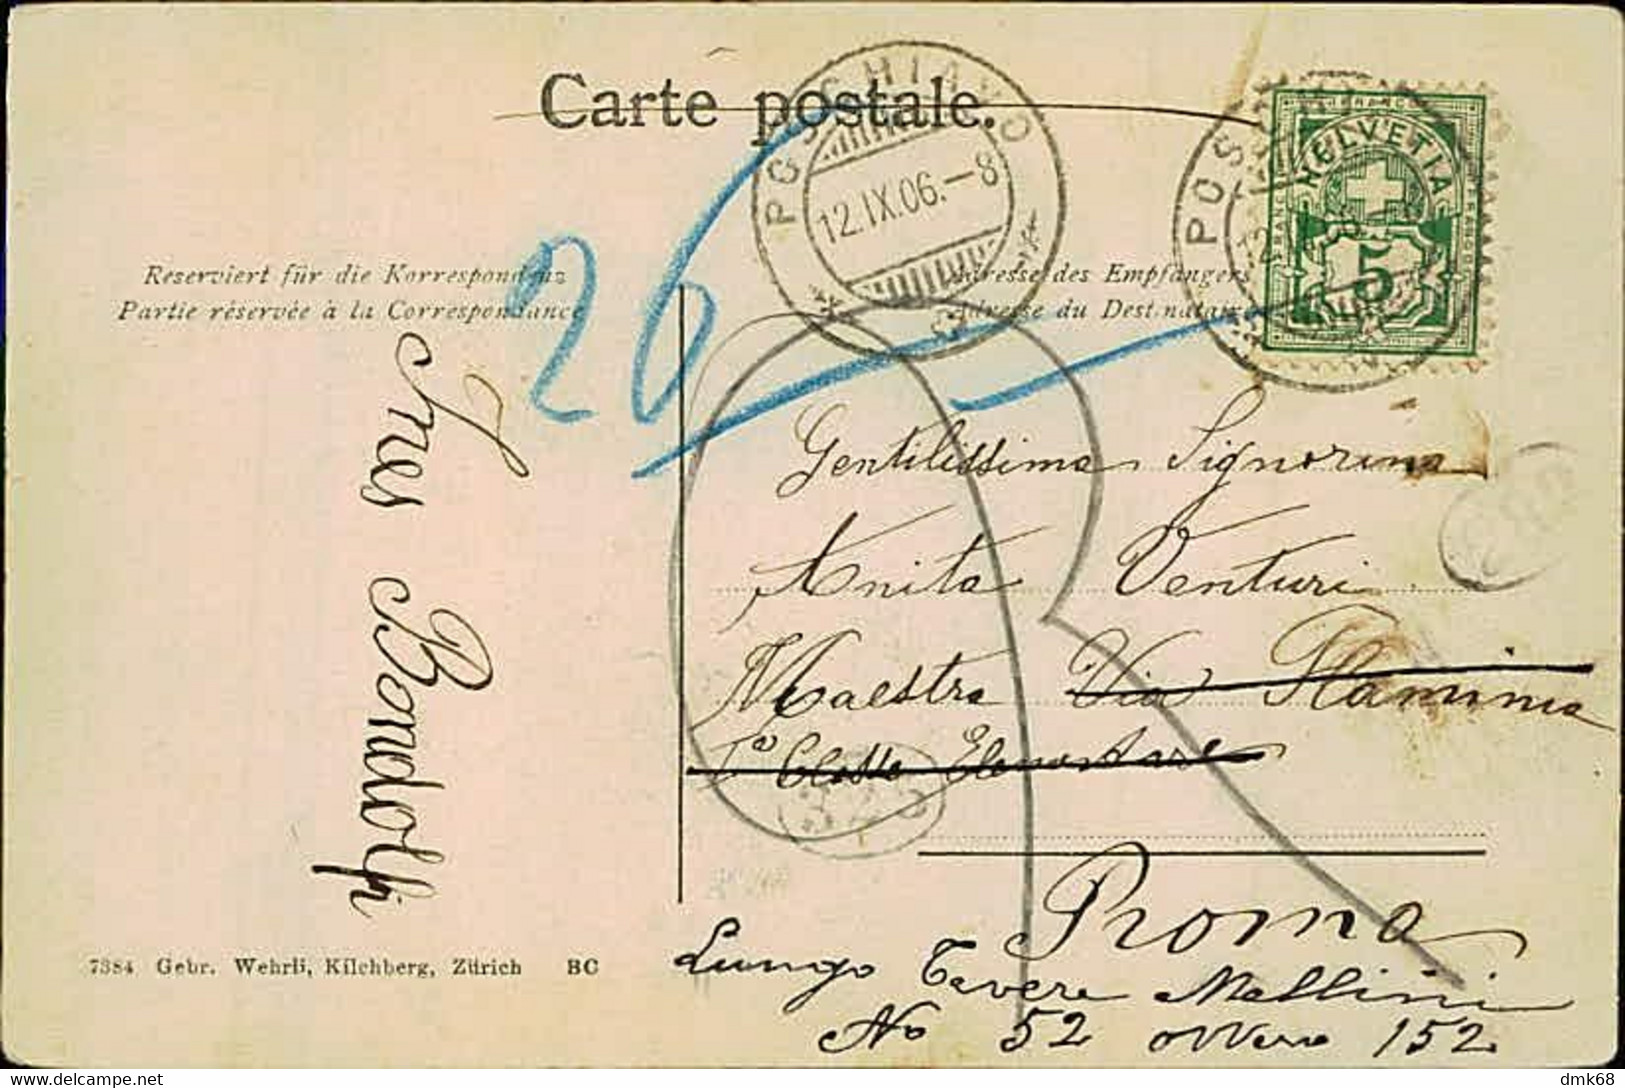 Carte postale.
POSCHIAVO
12.IX.06.–8
HELVETIA
5
26
Reserviert für die Korrespondenz
Partie réservée à la Correspondance
Adresse des Empfängers
Adresse du Destinataire
Gentilissima Signorina
Anita Venturi
Maestra Via Flaminia
1a Classe Elementare
Roma
Lungo Tevere Mellini
No 52 ovvero 152
Ines Bondolfi
7384 Gebr. Wehrli, Kilchberg, Zürich BC
dmk68